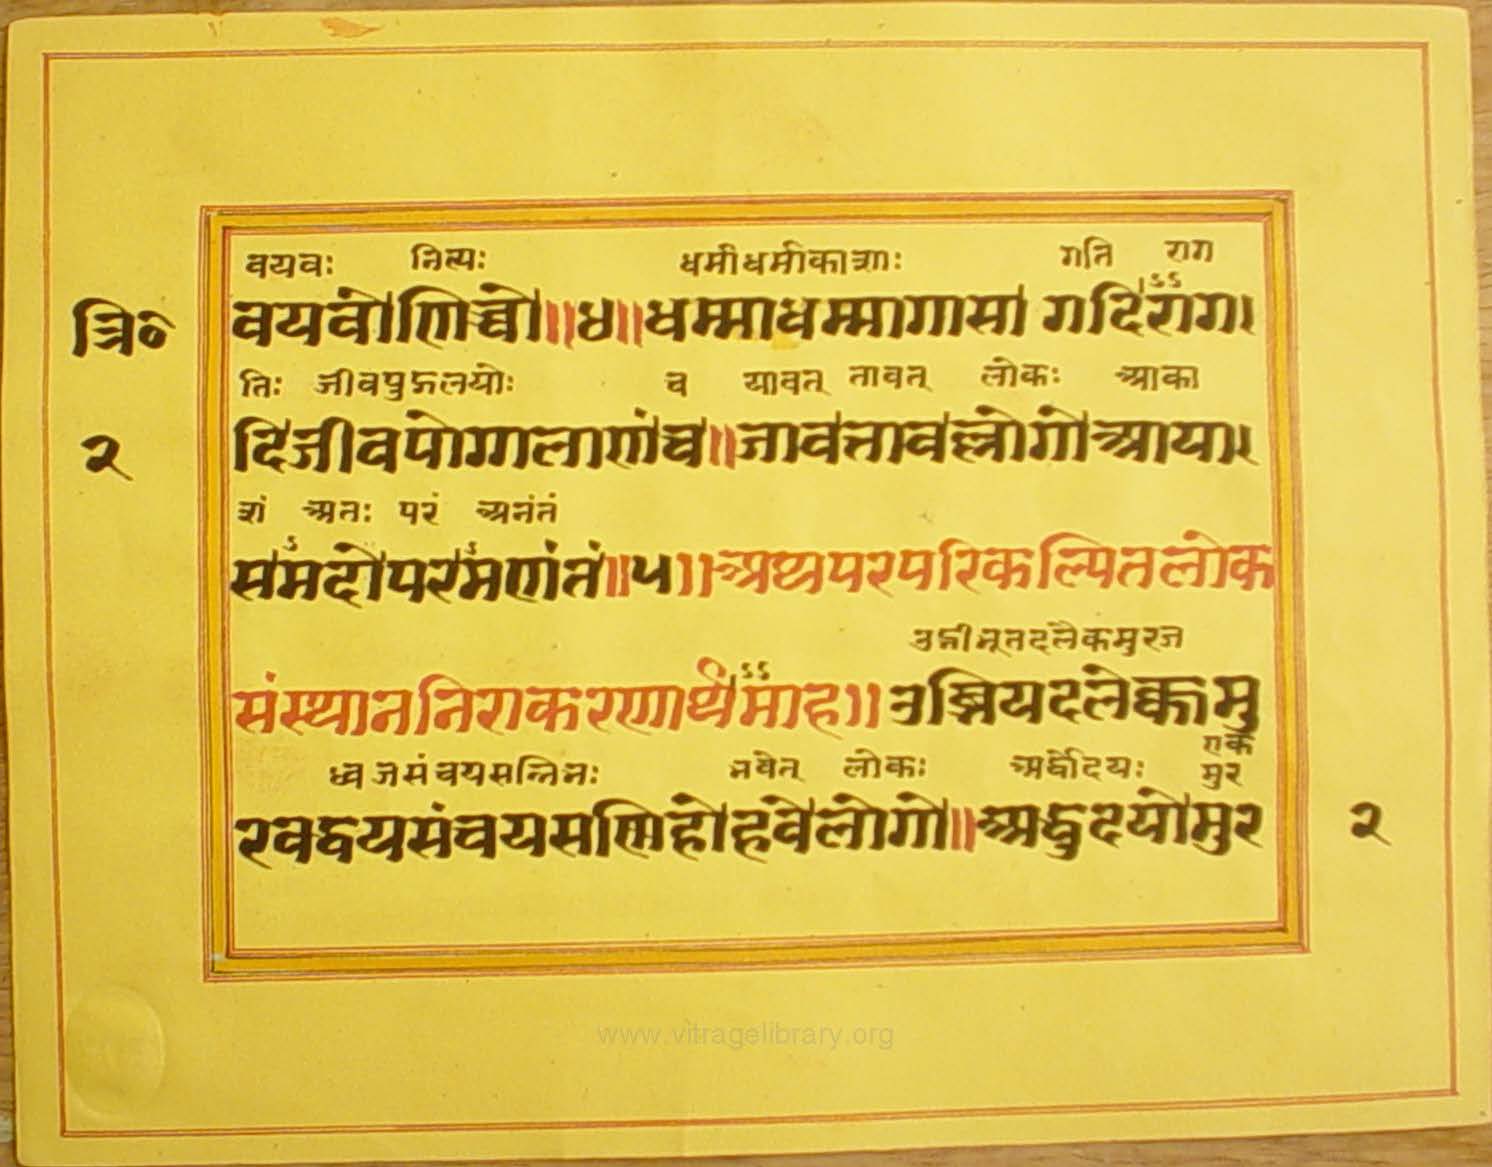 वयवः नित्यः धर्माधर्माकाशाः गति राग
त्रि० वयवो णिच्चो॥४॥धम्माधम्मागासा गदिराग।
तिः जीवपुद्गलयोः च यावत् तावत् लोकः आका
२ दिजीवपोग्गलाणं च॥जावत्तावल्लोगो आया।
शं अतः परं अनंतं
समदो परमणंतं॥५॥अथ परपरिकल्पितलोक
उद्भीभूतदलैकमुरज
संस्थाननिराकरणार्थमाह॥ उब्भियदलेक्कमु
एक
ध्वजसंचयसन्निभः भवेत् लोकः अर्द्धोदयः मुर
रवद्धयसंचयसण्णिहो हवे लोगो॥अद्धुदयो मुर २
www.vitragelibrary.org